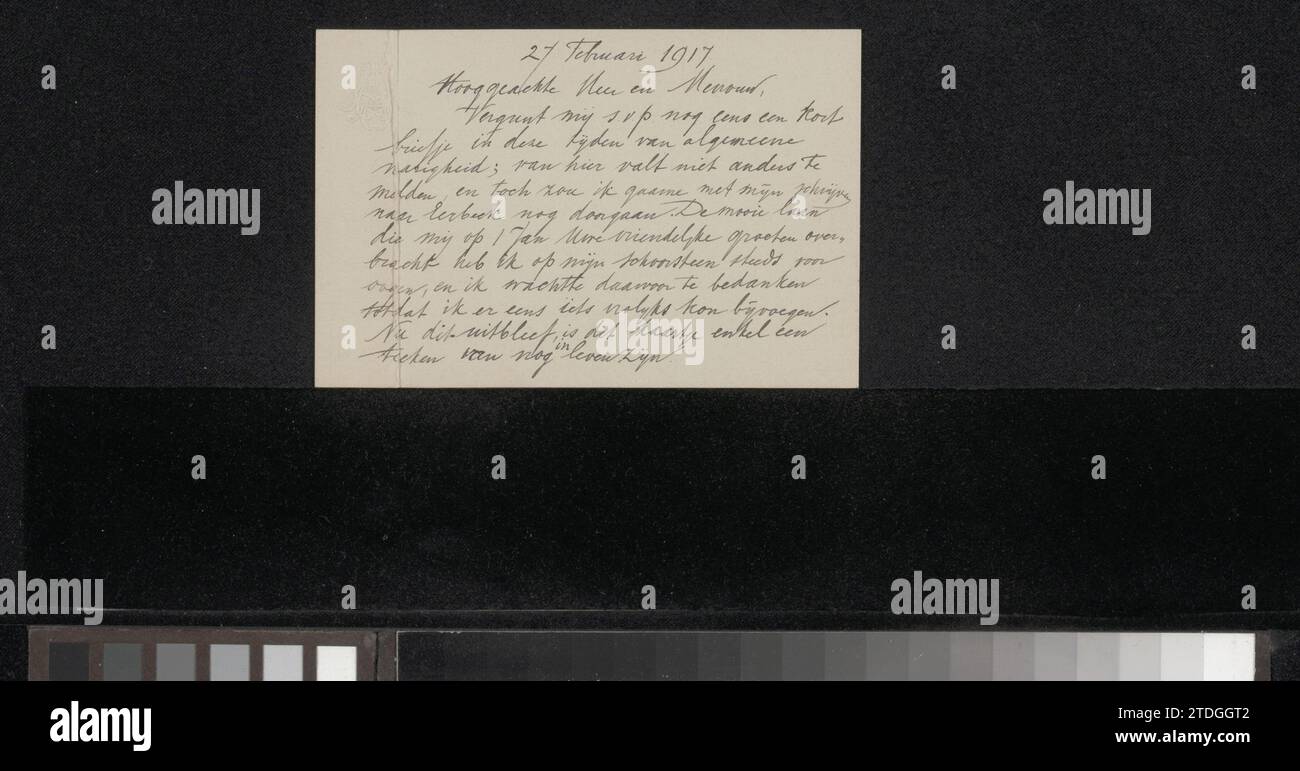 27 Februari 1917
Hooggeachte Heer en Mevrouw,
Vergunt mij s v p nog eens een kort
briefje in deze tijden van algemeene
narigheid; van hier valt niet anders te
melden, en toch zou ik gaarne met mijn schrijven
naar Eerbeek nog doorgaan. De mooie
die mij op 1 Jan Uwe vriendelijke groeten over-
bracht heb ik op mijn schoorsteen steeds voor
oogen, en ik wachtte daarvoor te bedanken
totdat ik er eens iets vrolijks kon bijvoegen.
Nu dit uitbleef, is dit kaartje enkel een
teeken van nog in leven zijn
alamy
Image ID: 2TDGGT2
www.alamy.com